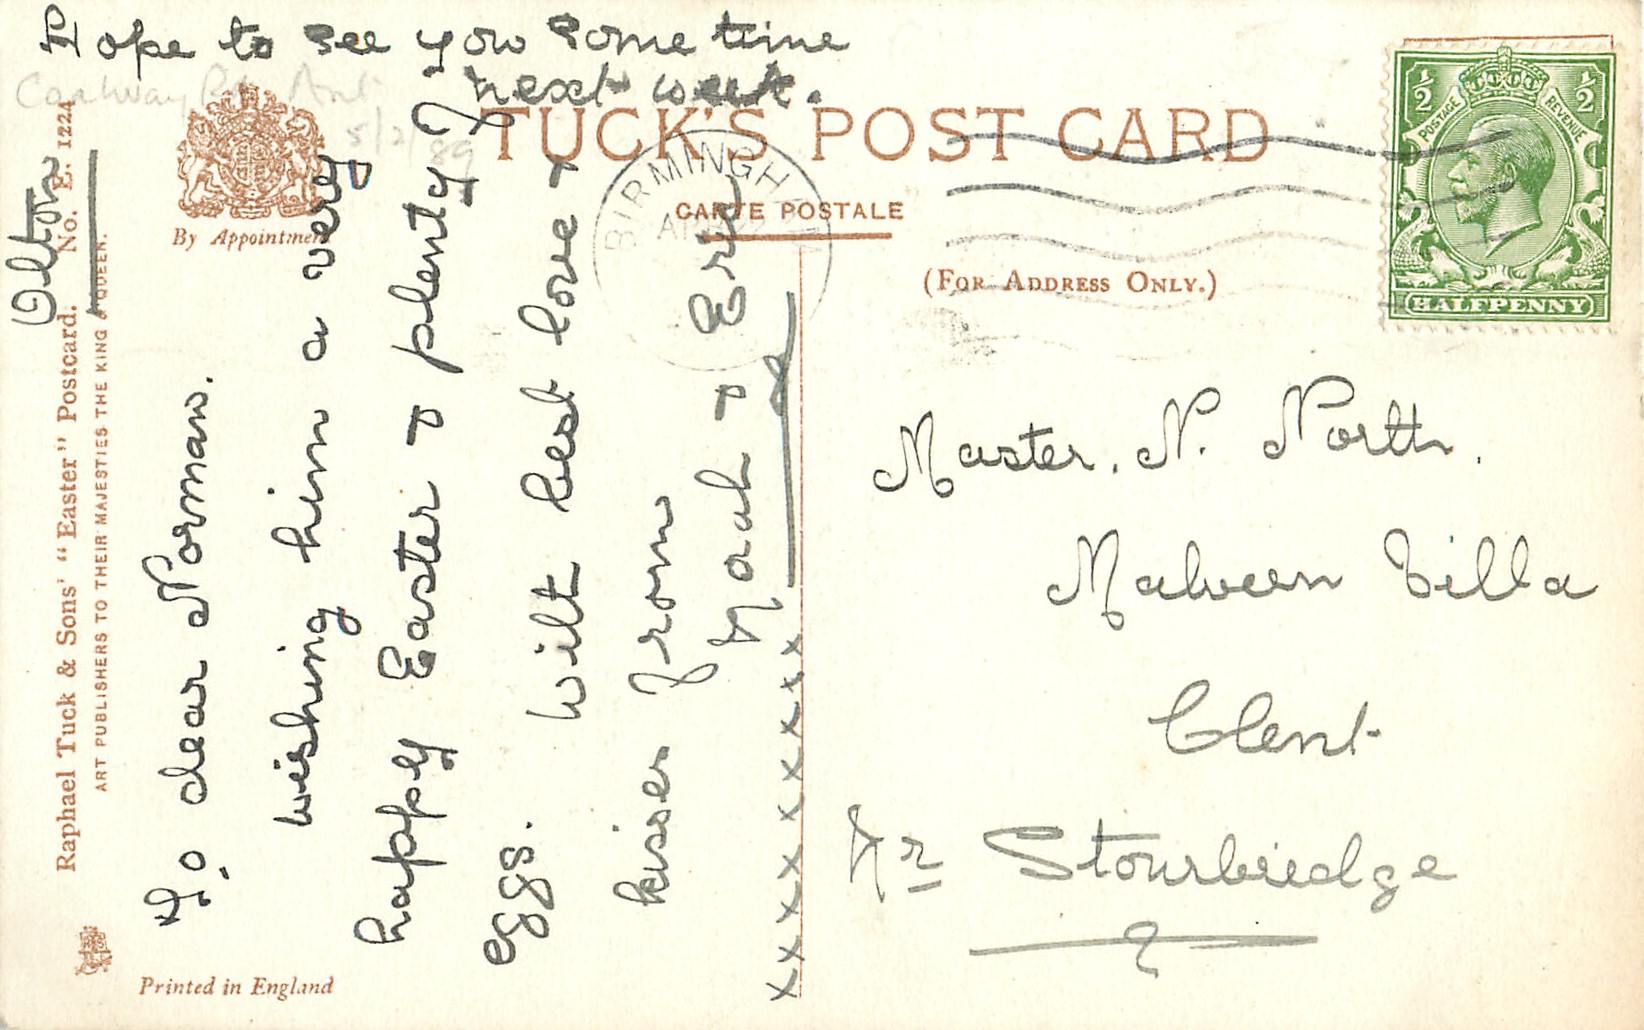 Hope to see you some time
next week.
Olton
To dear Norman.
wishing him a very
happy Easter & plenty of
eggs. With best love &
kisses from
& Eric
xxxxxxxxxxx
TUCK'S POST CARD
CARTE POSTALE
(FOR ADDRESS ONLY.)
BIRMINGH
POSTAGE
REVENUE
1/2
1/2
HALFPENNY
Master. N. North.
Malvern Villa
Clent
Nr Stourbridge
By Appointment
Raphael Tuck & Sons' "Easter" Postcard. No. E. 1224
ART PUBLISHERS TO THEIR MAJESTIES THE KING & QUEEN.
Printed in England
5/2/89